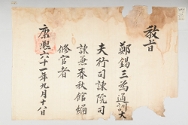 敎旨
鄭錫三爲通訓大
夫行司諫院司
諫兼春秋館編
修官者
康熙六十一年九月十八日